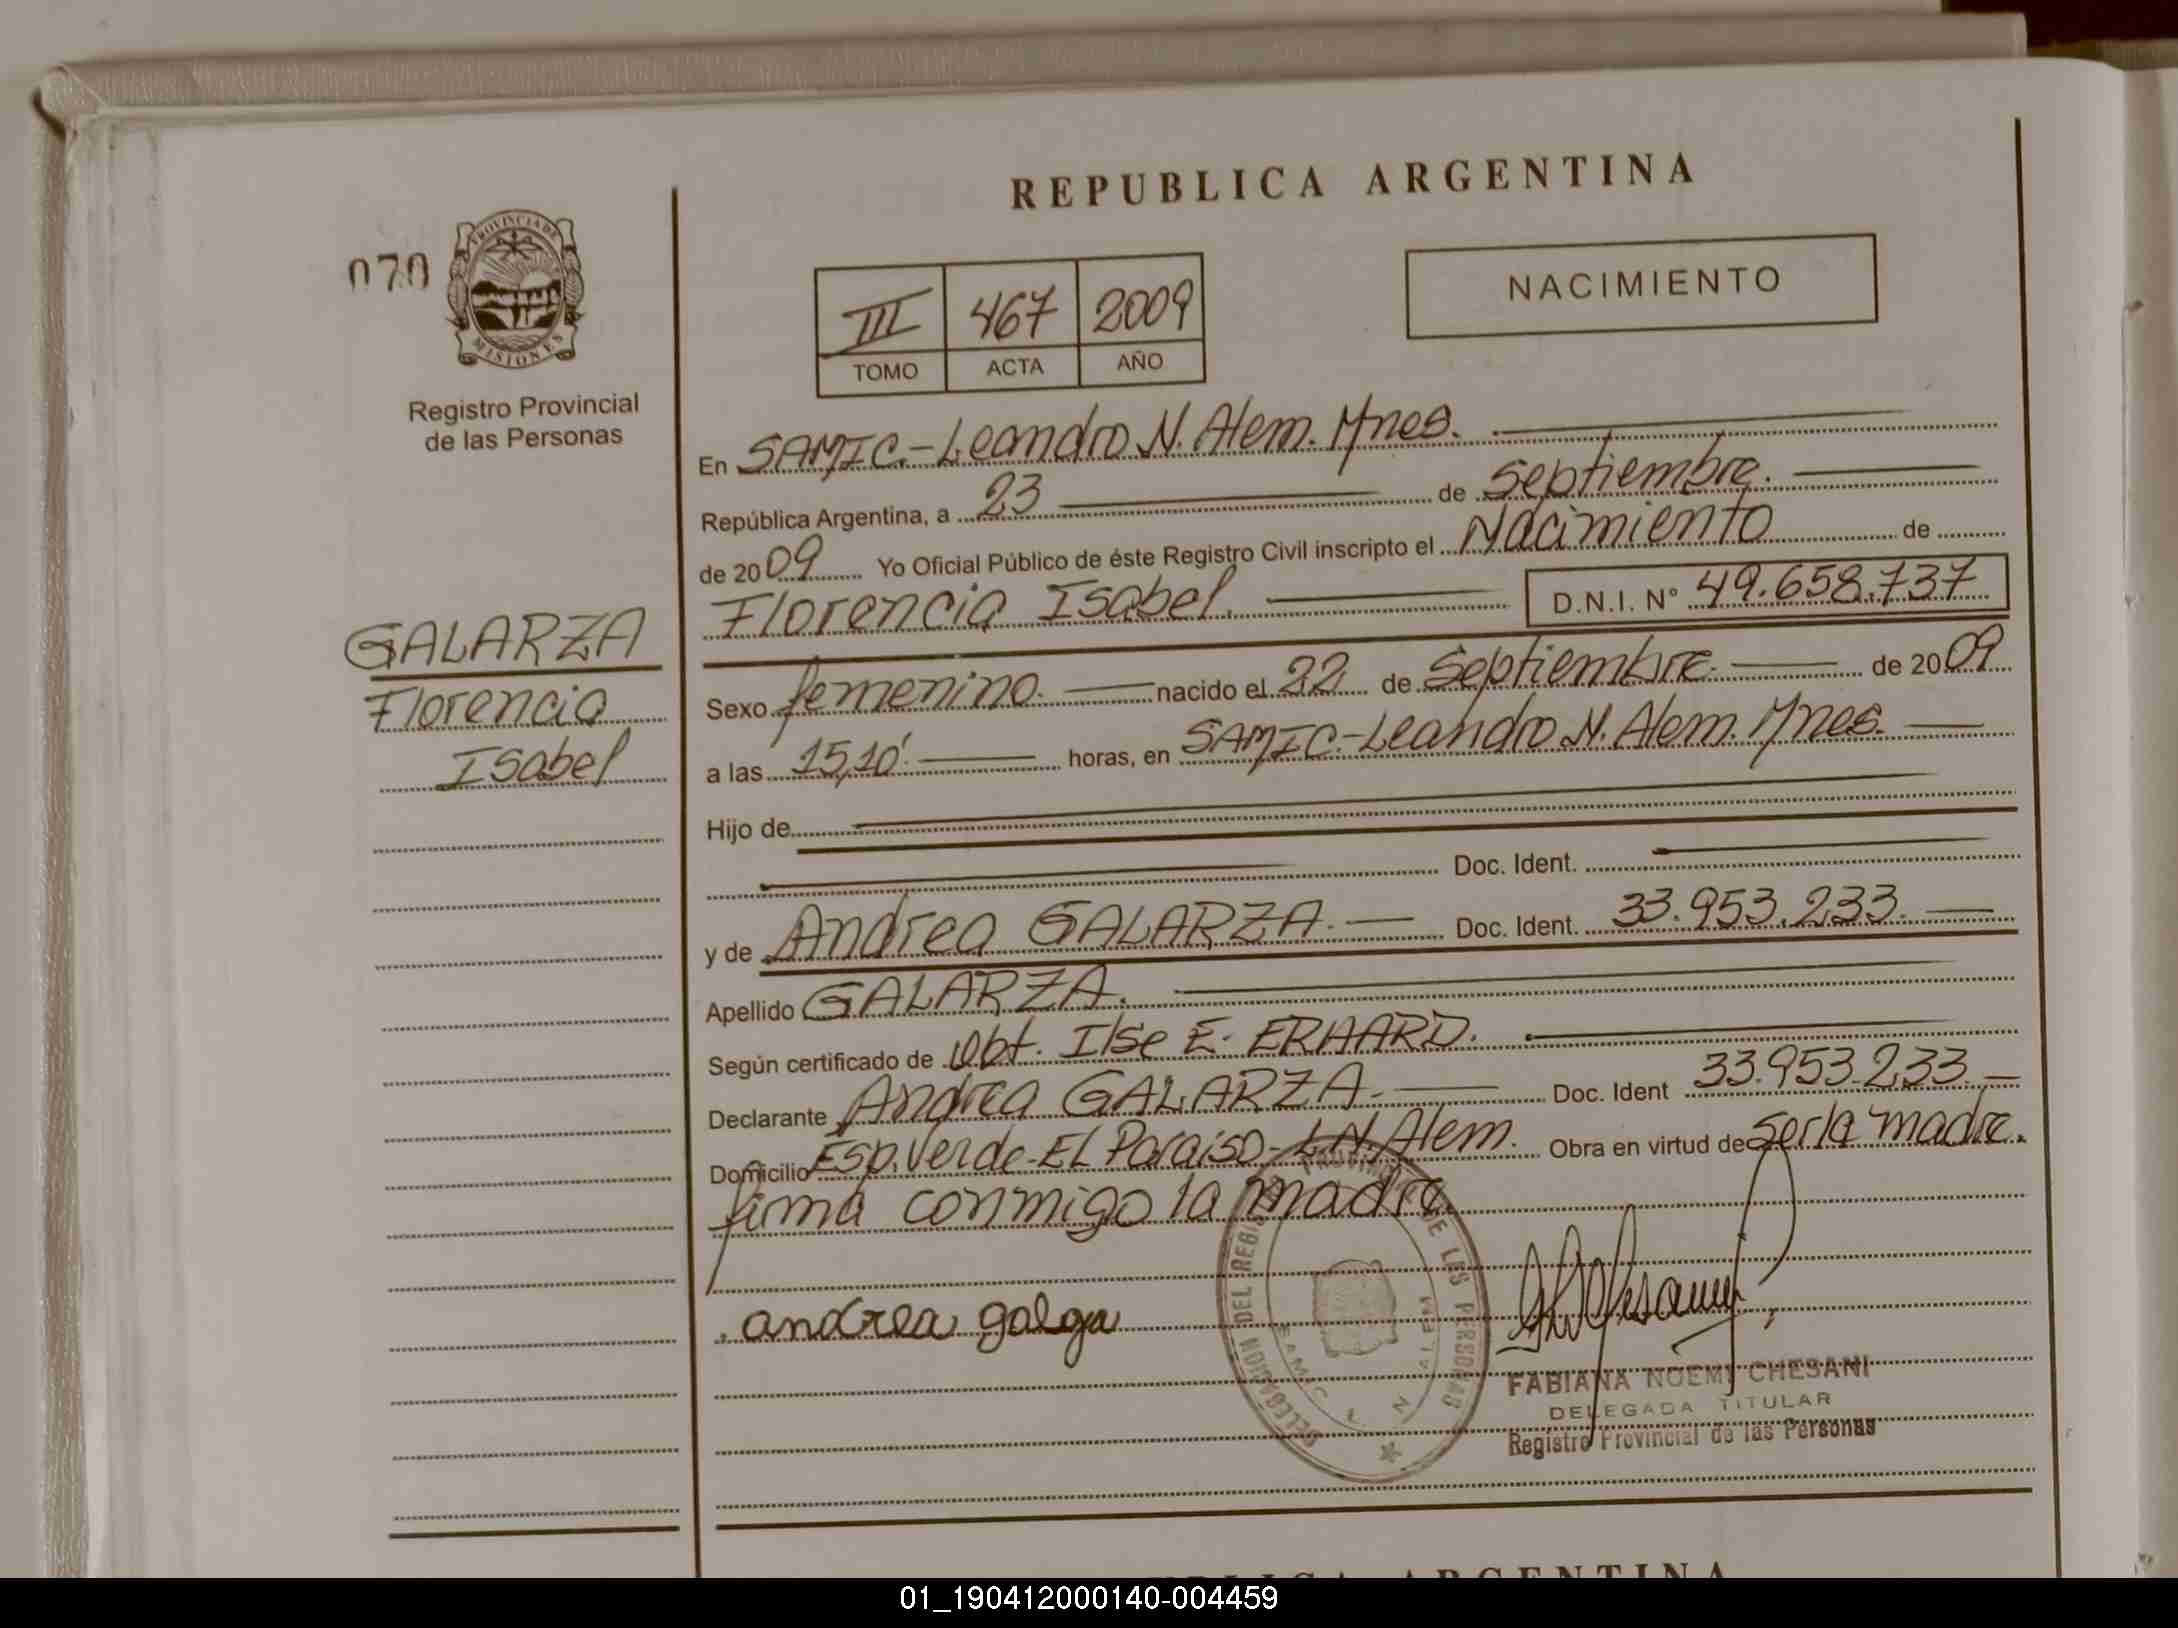 REPUBLICA ARGENTINA
070
PROVINCIA DE
MISIONES
Registro Provincial
de las Personas
III 467 2009
TOMO ACTA AÑO
NACIMIENTO
En SAMIC.-Leandro N. Alem. Mnes.
República Argentina, a 23 de Septiembre.
de 2009 Yo Oficial Público de éste Registro Civil inscripto el Nacimiento de
Florencia Isabel. D.N.I. Nº 49.658.737
GALARZA
Florencia
Isabel
Sexo femenino. nacido el 22 de Septiembre. de 2009
a las 15,10'. horas, en SAMIC.-Leandro N. Alem. Mnes.
Hijo de
Doc. Ident.
y de Andrea GALARZA. Doc. Ident. 33.953.233.
Apellido GALARZA.
Según certificado de Obt. Ilse E. ERHARD.
Declarante Andrea GALARZA. Doc. Ident 33.953.233.
Domicilio Esp. Verde-EL Paraíso-L.N. Alem. Obra en virtud de Ser la madre.
firma conmigo la madre.
andrea galga
DELEGACION DEL REGIS PROVIN DE LAS PERSONAS
SAMIC L N ALEM
FABIANA NOEMI CHESANI
DELEGADA TITULAR
Registro Provincial de las Personas
ARGENTINA
01_190412000140-004459